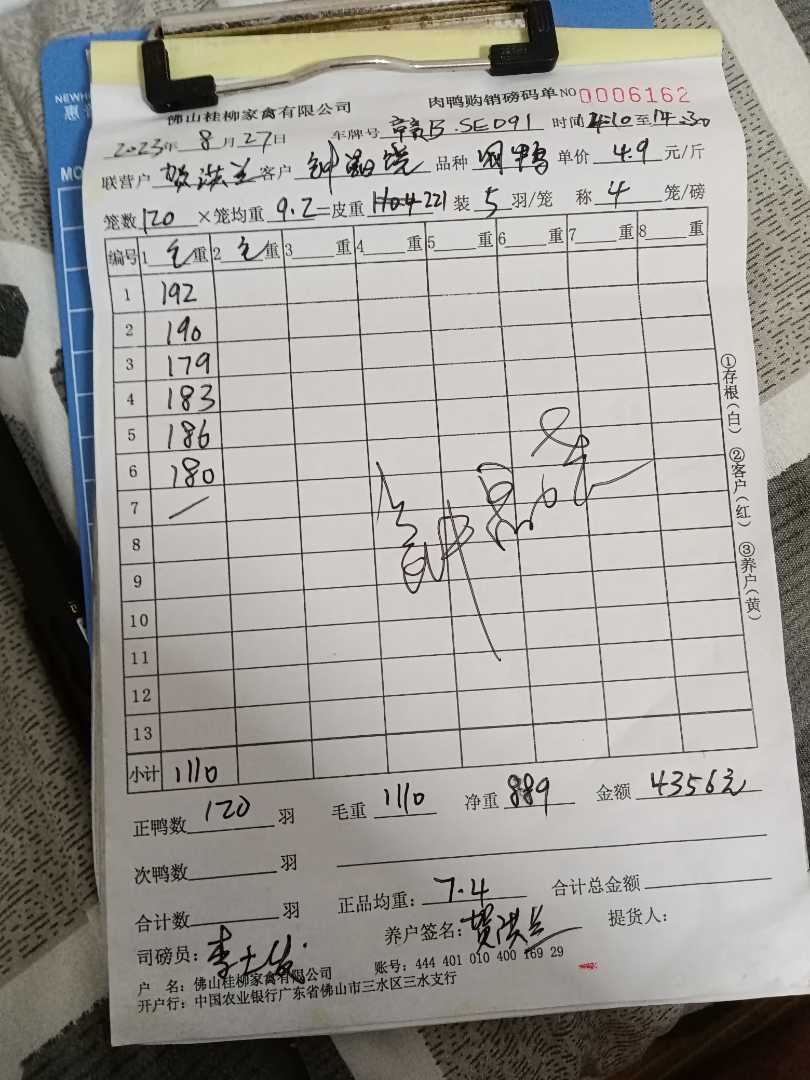 NEWH
惠
MO
佛山桂柳家禽有限公司 肉鸭购销磅码单 NO 0006162
2023年 8月27日 车牌号 B·SED91 时间 至14:30
联营户 贺洪兰 客户 钟 品种 鸭 单价 4.9 元/斤
笼数 120 ×笼均重 9.2 =皮重 221 装 5 羽/笼 称 4 笼/磅
编号 1 毛 重 2 毛 重 3 重 4 重 5 重 6 重 7 重 8 重
1 192
2 190
3 179
4 183
5 186
6 180
7 /
8
9
10
11
12
13
小计 1110
①存根(白) ②客户(红) ③养户(黄)
正鸭数 120 羽 毛重 1110 净重 889 金额 4356元
次鸭数 羽
合计数 羽 正品均重: 7.4 合计总金额
司磅员: 李 养户签名: 贺洪兰 提货人:
户 名: 佛山桂柳家禽有限公司 账号: 444 401 010 400 169 29
开户行: 中国农业银行广东省佛山市三水区三水支行